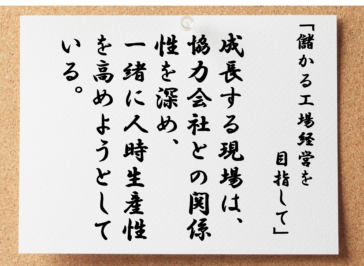 「儲かる工場経営を
目指して」
成長する現場は、
協力会社との関係
性を深め、
一緒に人時生産性
を高めようとして
いる。